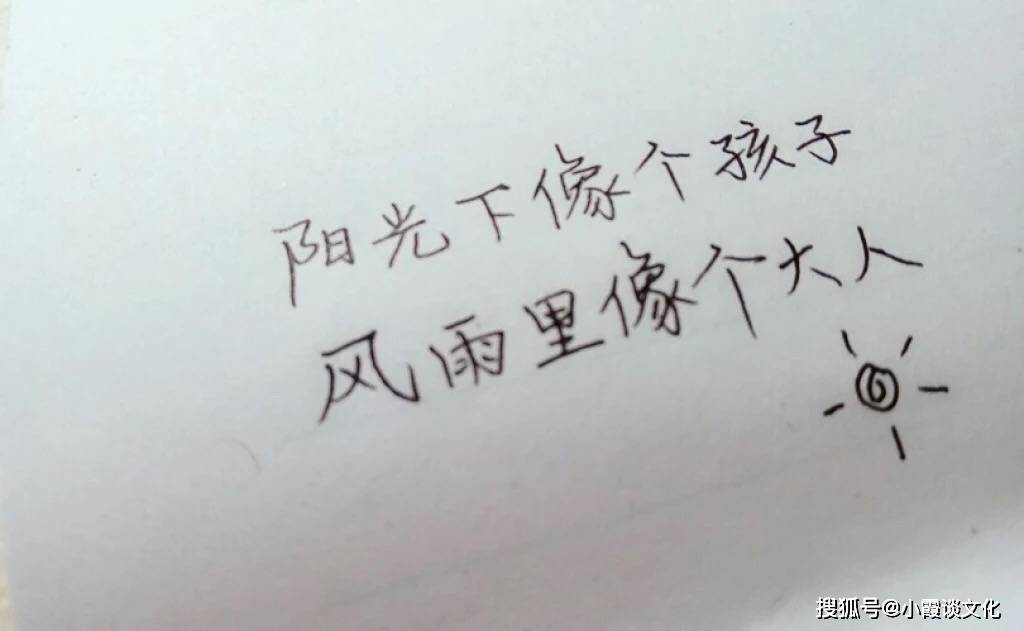 阳光下像个孩子
风雨里像个大人
搜狐号@小霞谈文化